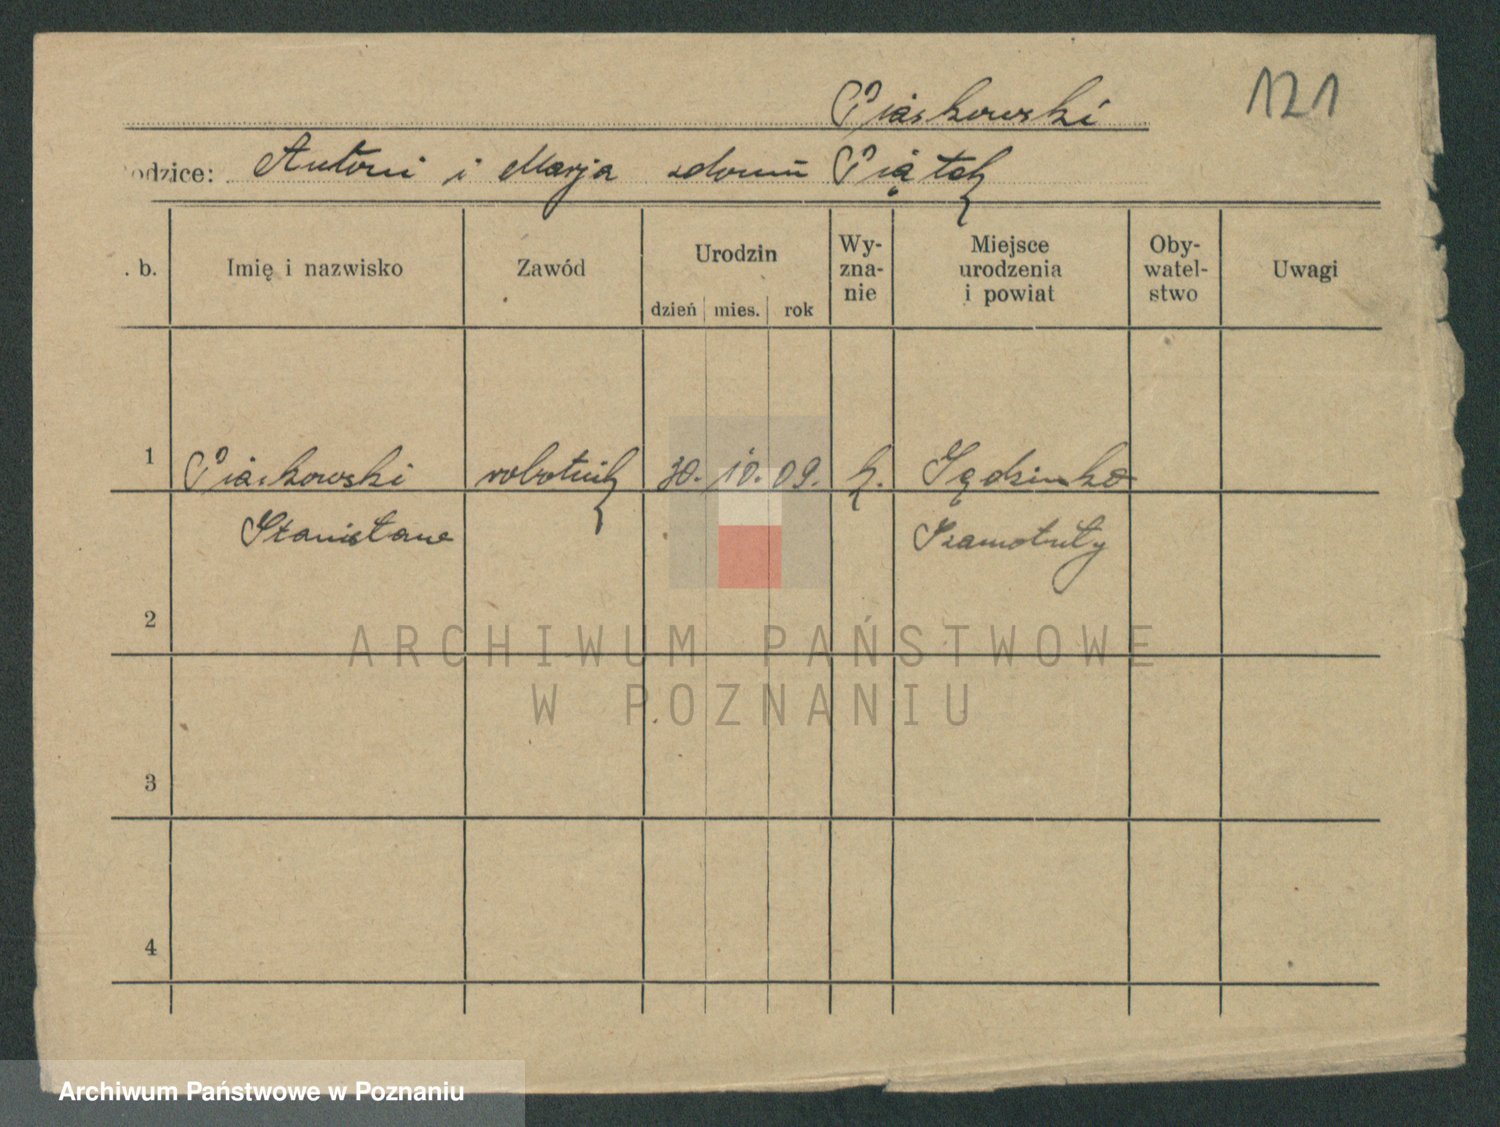 Piaskowski
121
odzice: Antoni i Marja zdomu Piątek
. b.
Imię i nazwisko
Zawód
Urodzin
dzień mies. rok
Wy-
zna-
nie
Miejsce
urodzenia
i powiat
Oby-
watel-
stwo
Uwagi
1 Piaskowski robotnik 30. 10. 09. k. Sędzinko
Stanisław Szamotuły
2
3
4
ARCHIWUM PAŃSTWOWE
W POZNANIU
Archiwum Państwowe w Poznaniu